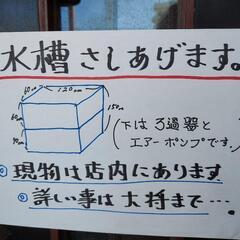 水槽さしあげます。
60cm
120cm
150cm
(下はろ過器と
エアーポンプです。)
◎現物は店内にあります
◎詳しい事は大将まで…